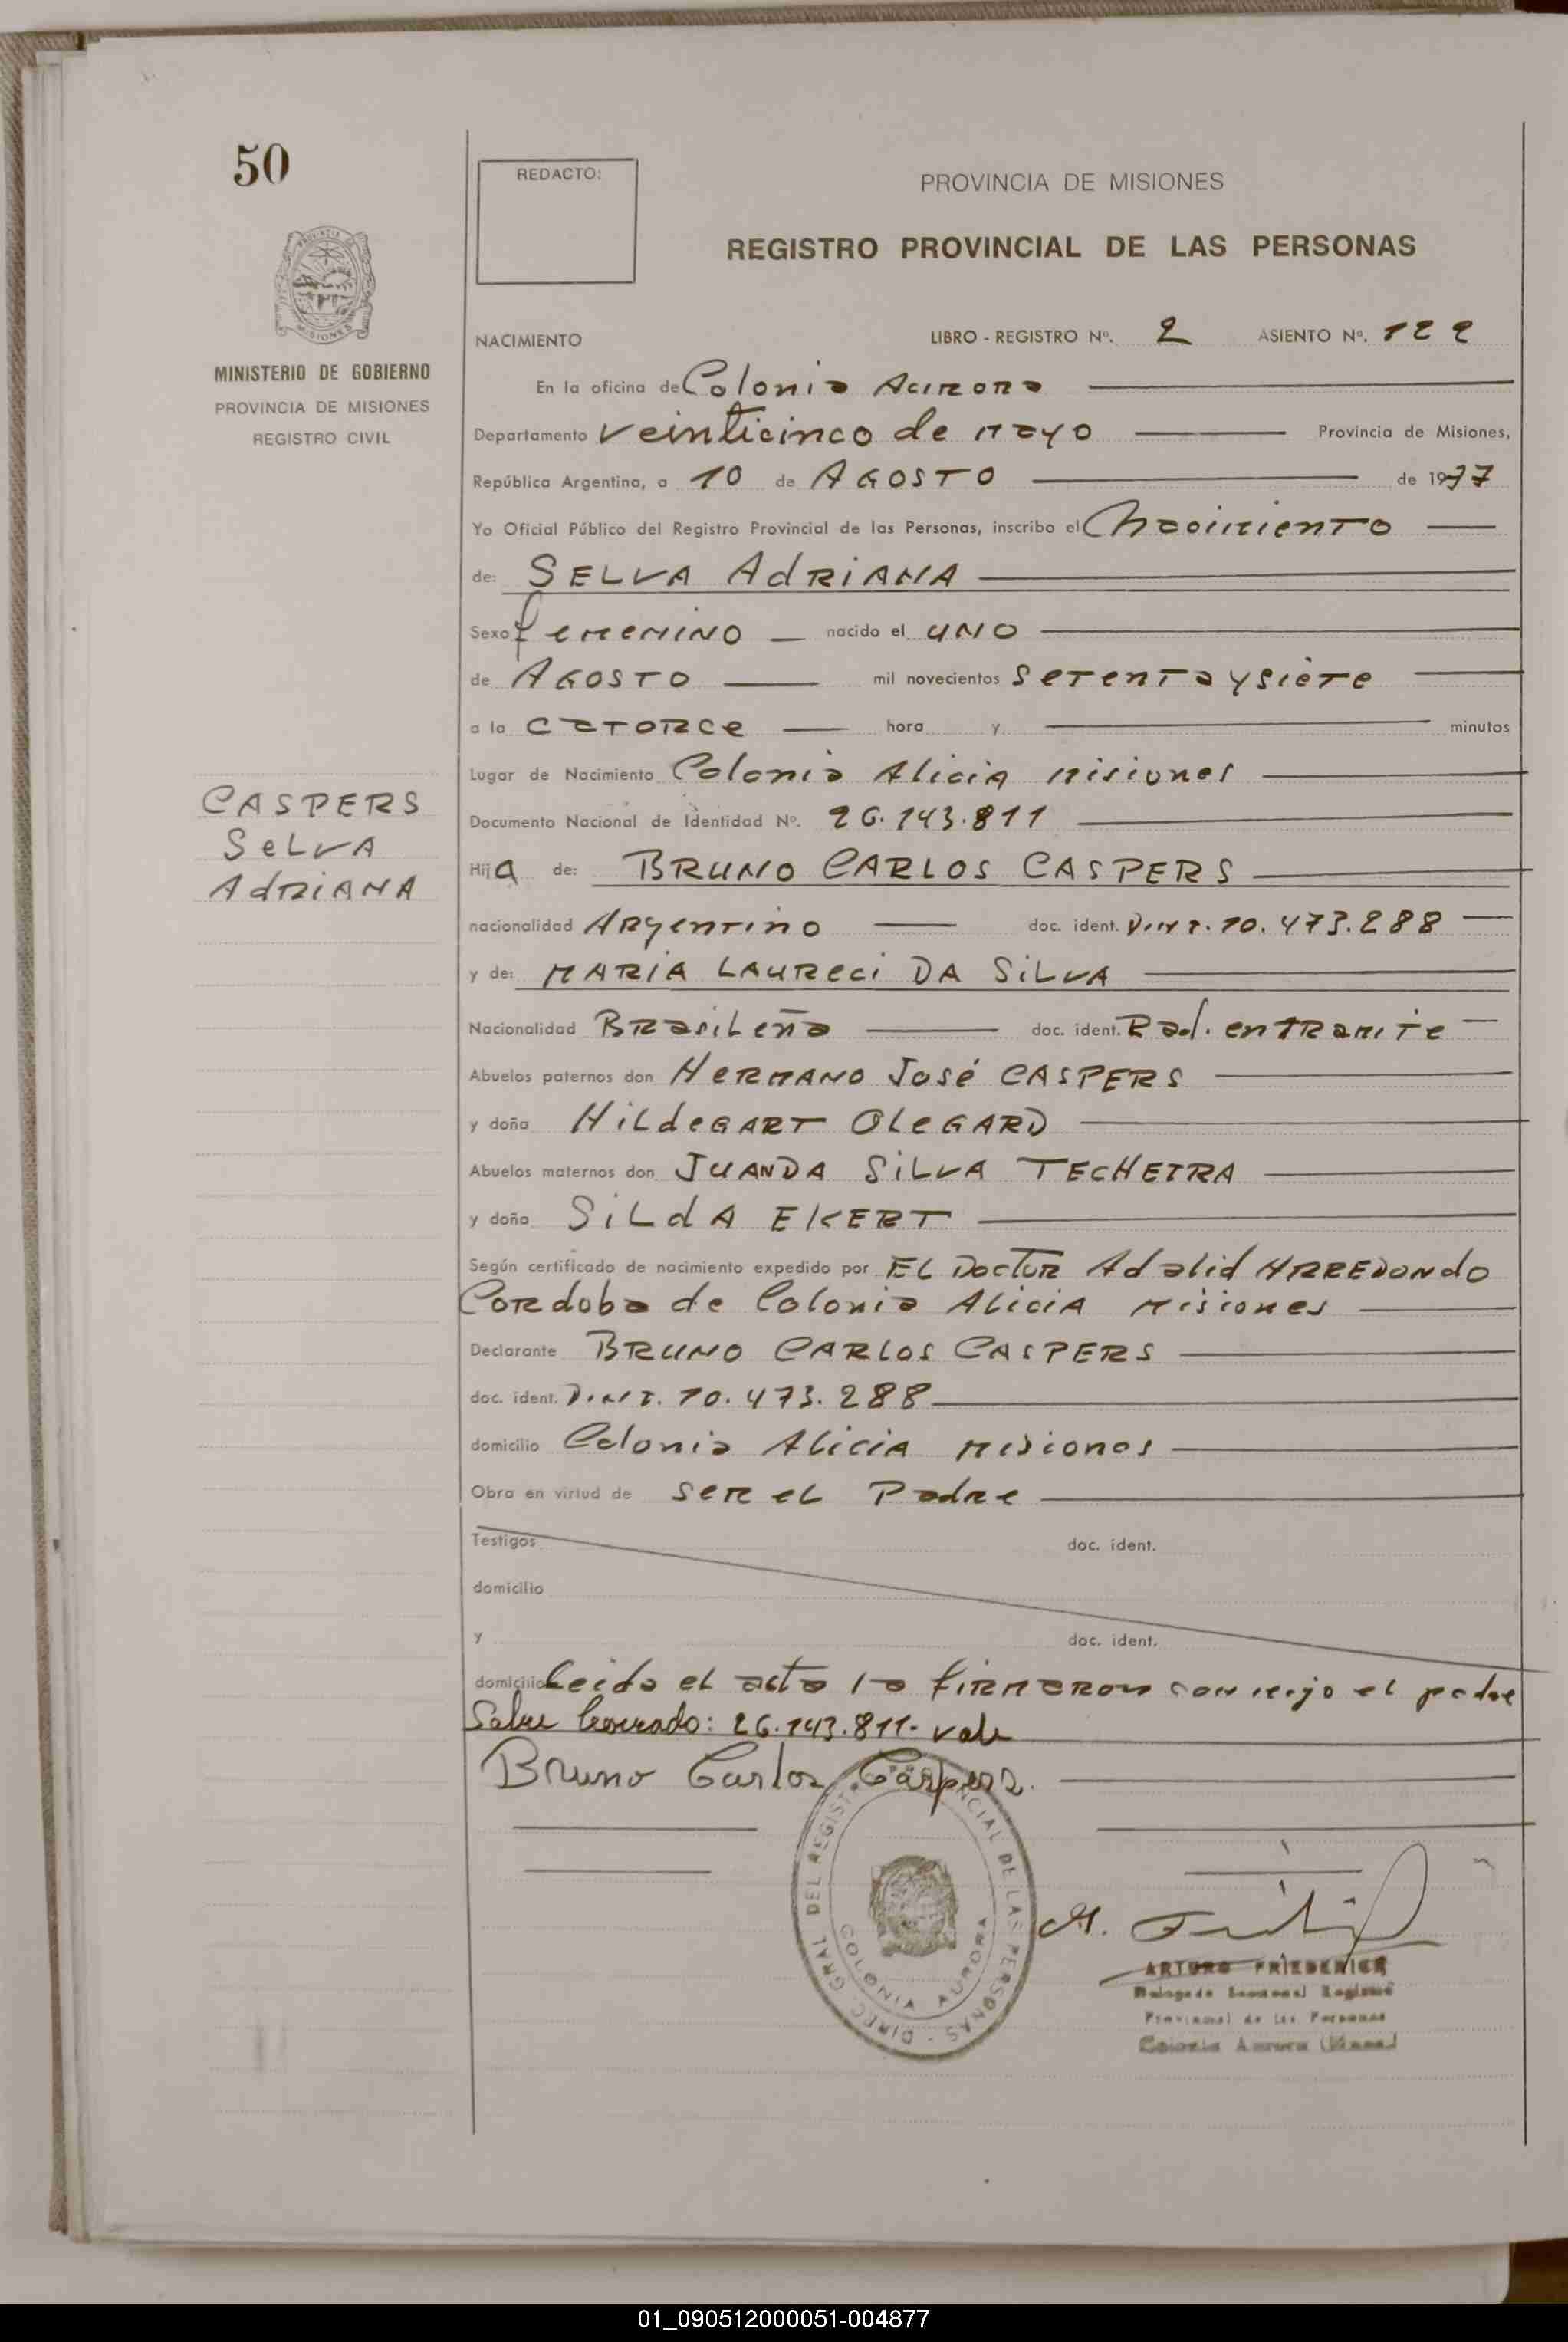 50
REDACTO:
PROVINCIA DE MISIONES
REGISTRO PROVINCIAL DE LAS PERSONAS
MINISTERIO DE GOBIERNO
PROVINCIA DE MISIONES
REGISTRO CIVIL
NACIMIENTO LIBRO - REGISTRO Nº. 2 ASIENTO Nº. 122
En la oficina de Colonia Aurora
Departamento veinticinco de mayo Provincia de Misiones,
República Argentina, a 10 de AGOSTO de 1977
Yo Oficial Público del Registro Provincial de las Personas, inscribo el Nacimiento
de: SELVA AdRiANA
Sexo femenino nacido el uno
de AGOSTO mil novecientos setenta y siete
a la catorce hora y minutos
Lugar de Nacimiento Colonia Alicia misiones
Documento Nacional de Identidad Nº. 26.143.811
CASPERS
SeLVA
AdRiANA
Hija de: BRUNO CARLOS CASPERS
nacionalidad Argentino doc. ident. D.N.I. 10.473.288
y de: MARIA LAUReci DA SiLVA
Nacionalidad Brasileña doc. ident. Rad. en tramite
Abuelos paternos don HeRMANO José CASPERS
y doña HiLdeGART OLeGARD
Abuelos maternos don JUANDA SiLVA TECHEIRA
y doña SiLdA EKERT
Según certificado de nacimiento expedido por EL Doctor Adalid ARREDONdo
Cordoba de Colonia Alicia misiones
Declarante BRUNO CARLOS CASPERS
doc. ident. D.N.I. 10.473.288
domicilio Colonia Alicia misiones
Obra en virtud de ser el Padre
Testigos doc. ident.
domicilio
y doc. ident.
domicilio Leida el acta la firmaron conmigo el padre
Sobre borrado: 26.143.811- vale
Bruno Carlos Caspers.
DIREC. GRAL. DEL REGISTRO PROVINCIAL DE LAS PERSONAS
COLONIA AURORA
MISIONES
ARTURO FRIEDERICH
Provincial de las Personas
Colonia Aurora (Mnes.)
01_090512000051-004877